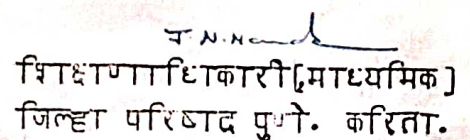 शिक्षाणाधिकारी(माध्यमिक)
जिल्हा परिषाद पुणे. करिता.